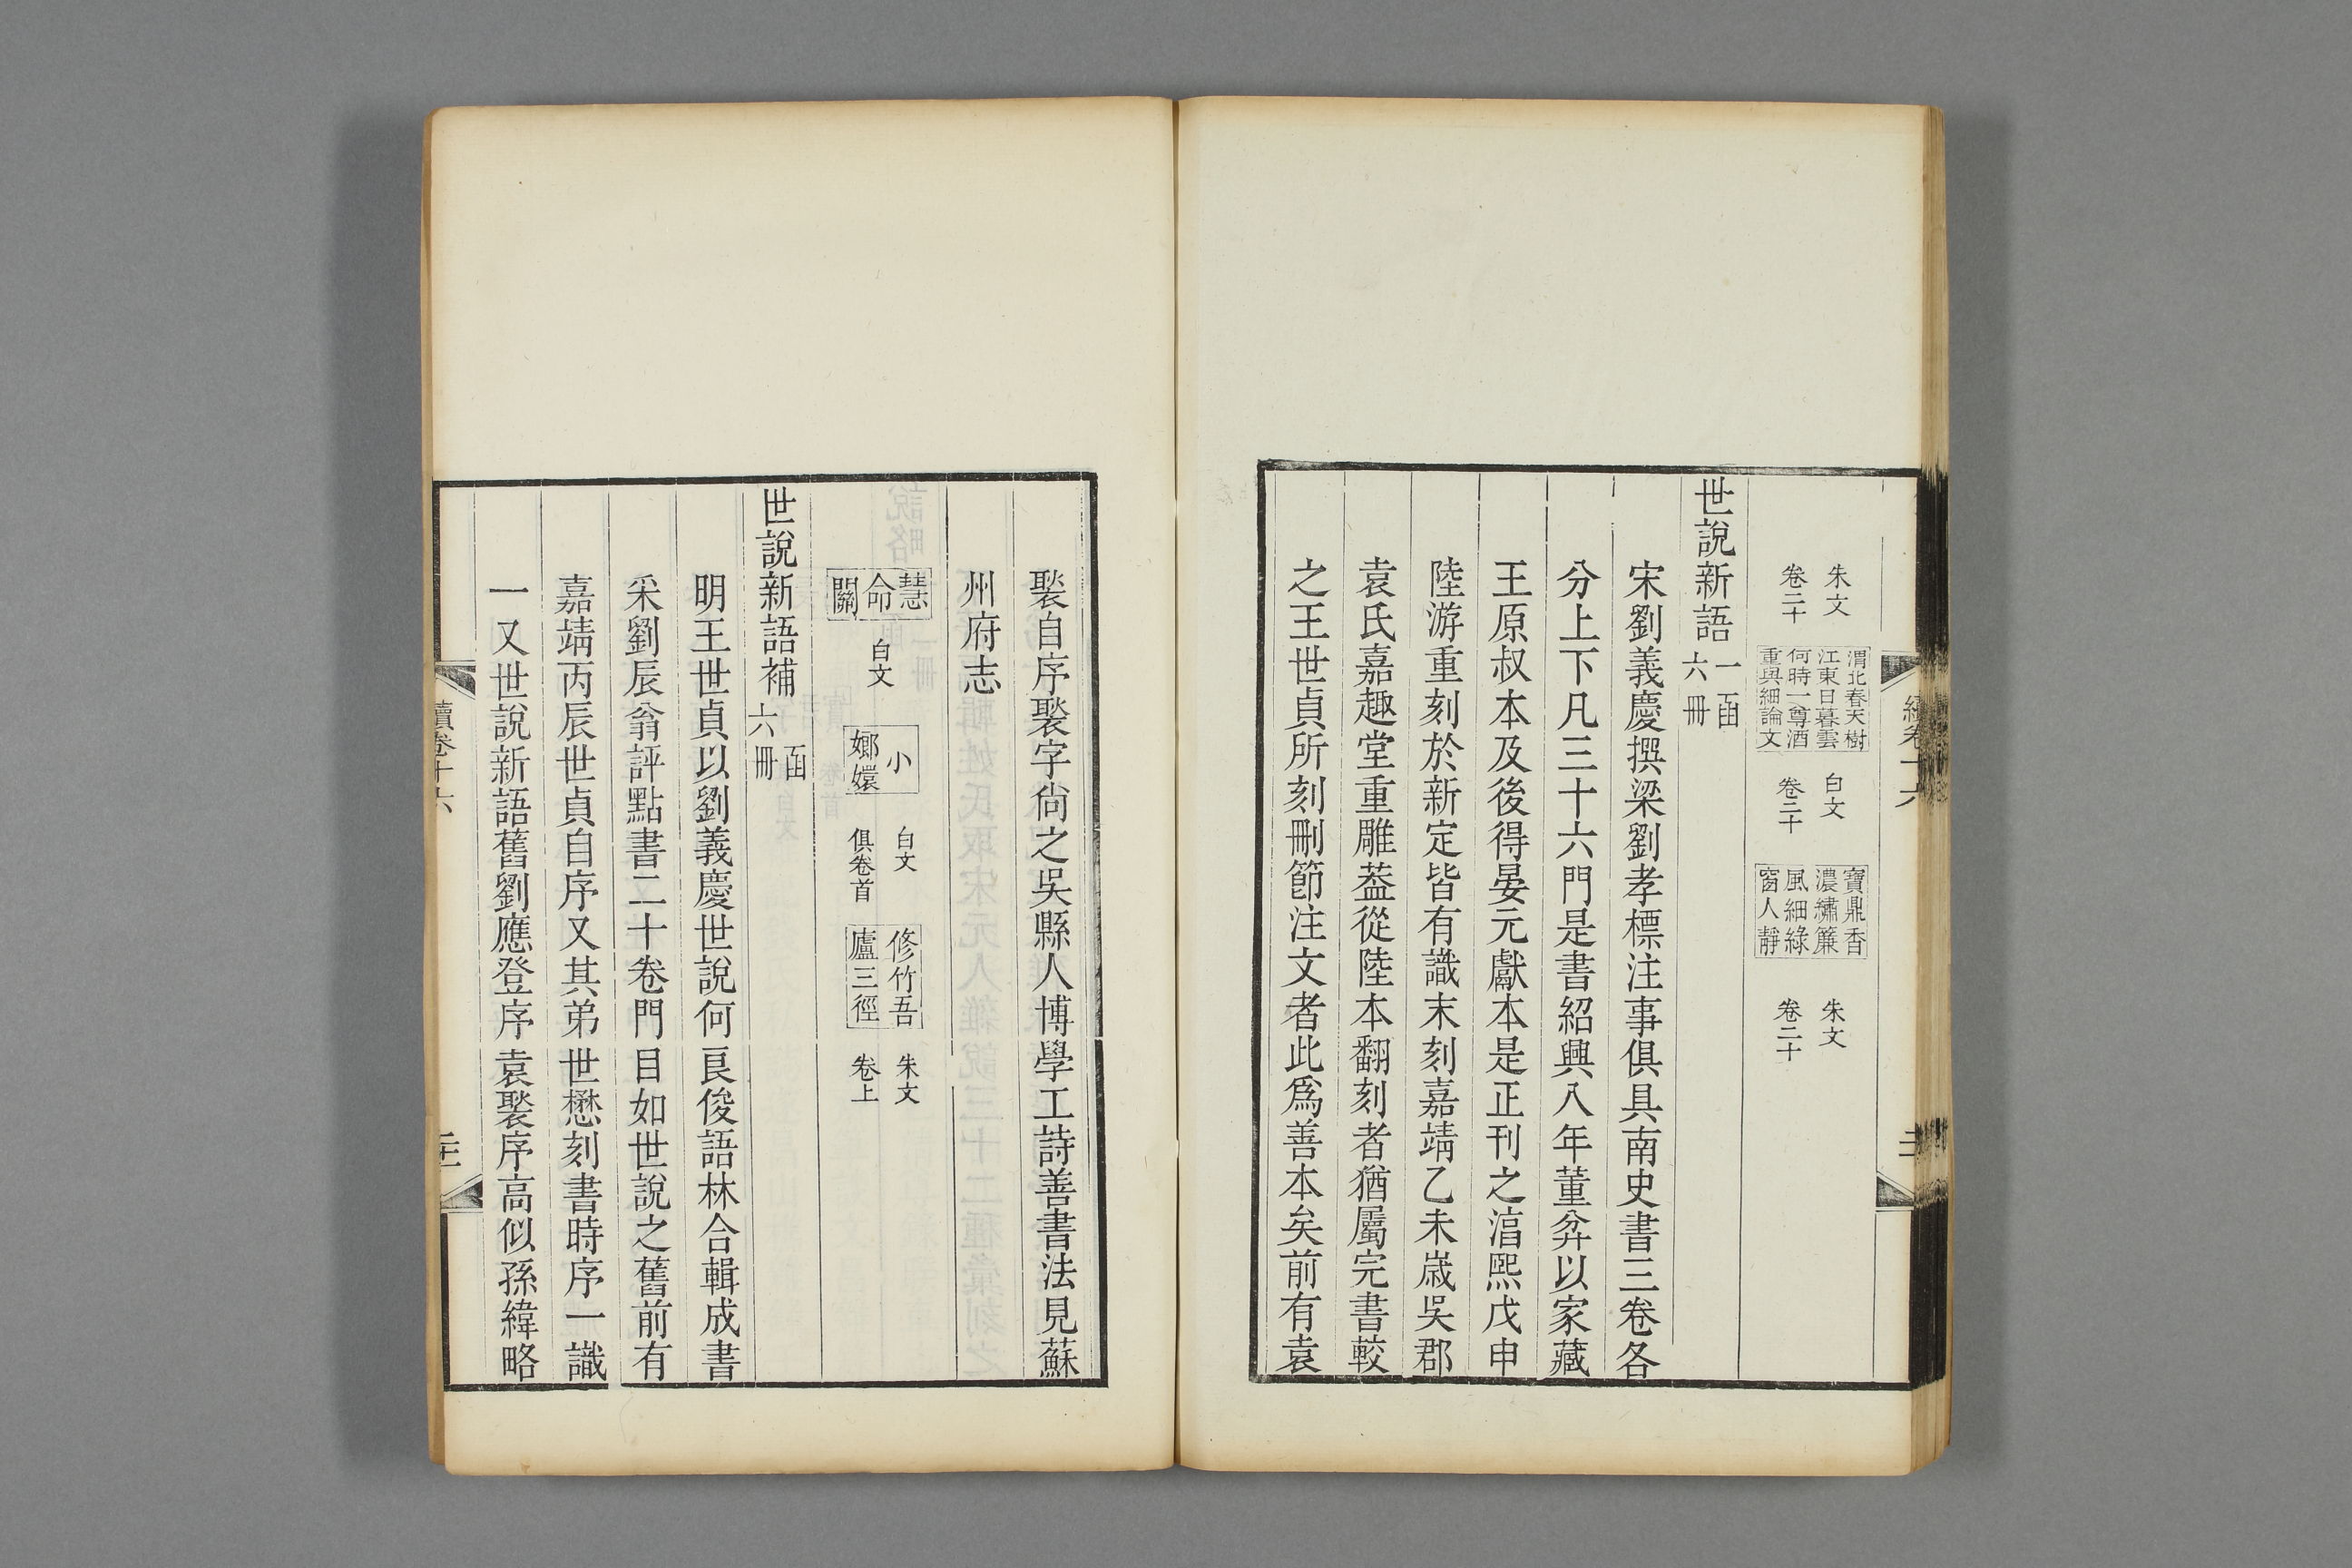 朱文 卷二十
渭北春天樹
江東日暮雲
何時一尊酒
重與細論文
白文 卷二十
寶鼎香
濃繡簾
風細綠
窗人靜
朱文 卷二十
世說新語 一函 六冊
宋劉義慶撰梁劉孝標注事俱具南史書三卷各
分上下凡三十六門是書紹興八年董弅以家藏
王原叔本及後得晏元獻本是正刊之淳熙戊申
陸游重刻於新定皆有識末刻嘉靖乙未歲吳郡
袁氏嘉趣堂重雕葢從陸本翻刻者猶屬完書較
之王世貞所刻刪節注文者此爲善本矣前有袁
褧自序褧字尚之吳縣人博學工詩善書法見蘇
州府志
慧命關 白文
小嫏嬛 白文 俱卷首
修竹吾廬三徑 朱文 卷上
世說新語補 函 六冊
明王世貞以劉義慶世說何良俊語林合輯成書
采劉辰翁評點書二十卷門目如世說之舊前有
嘉靖丙辰世貞自序又其弟世懋刻書時序一識
一又世說新語舊劉應登序袁褧序高似孫緯略
續卷十六